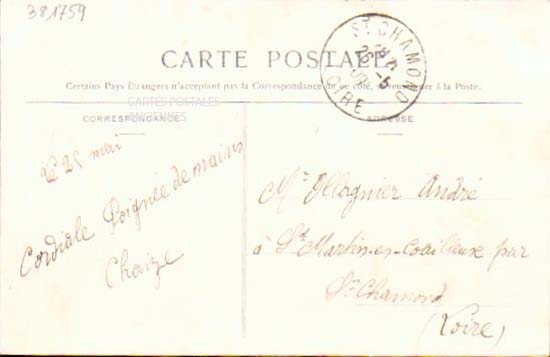 381759
CARTE POSTALE
Certains Pays Étrangers n'acceptant pas la Correspondance de ce côté, se renseigner à la Poste.
CARTES POSTALES
ANCIENNES
CORRESPONDANCE
Le 25 mai
Cordiale Poignée de mains
Chaize
ST CHAMOND
LOIRE
ADRESSE
Mr Ollagnier André
à St Martin-en-Coailleux par
St Chamond
(Loire)